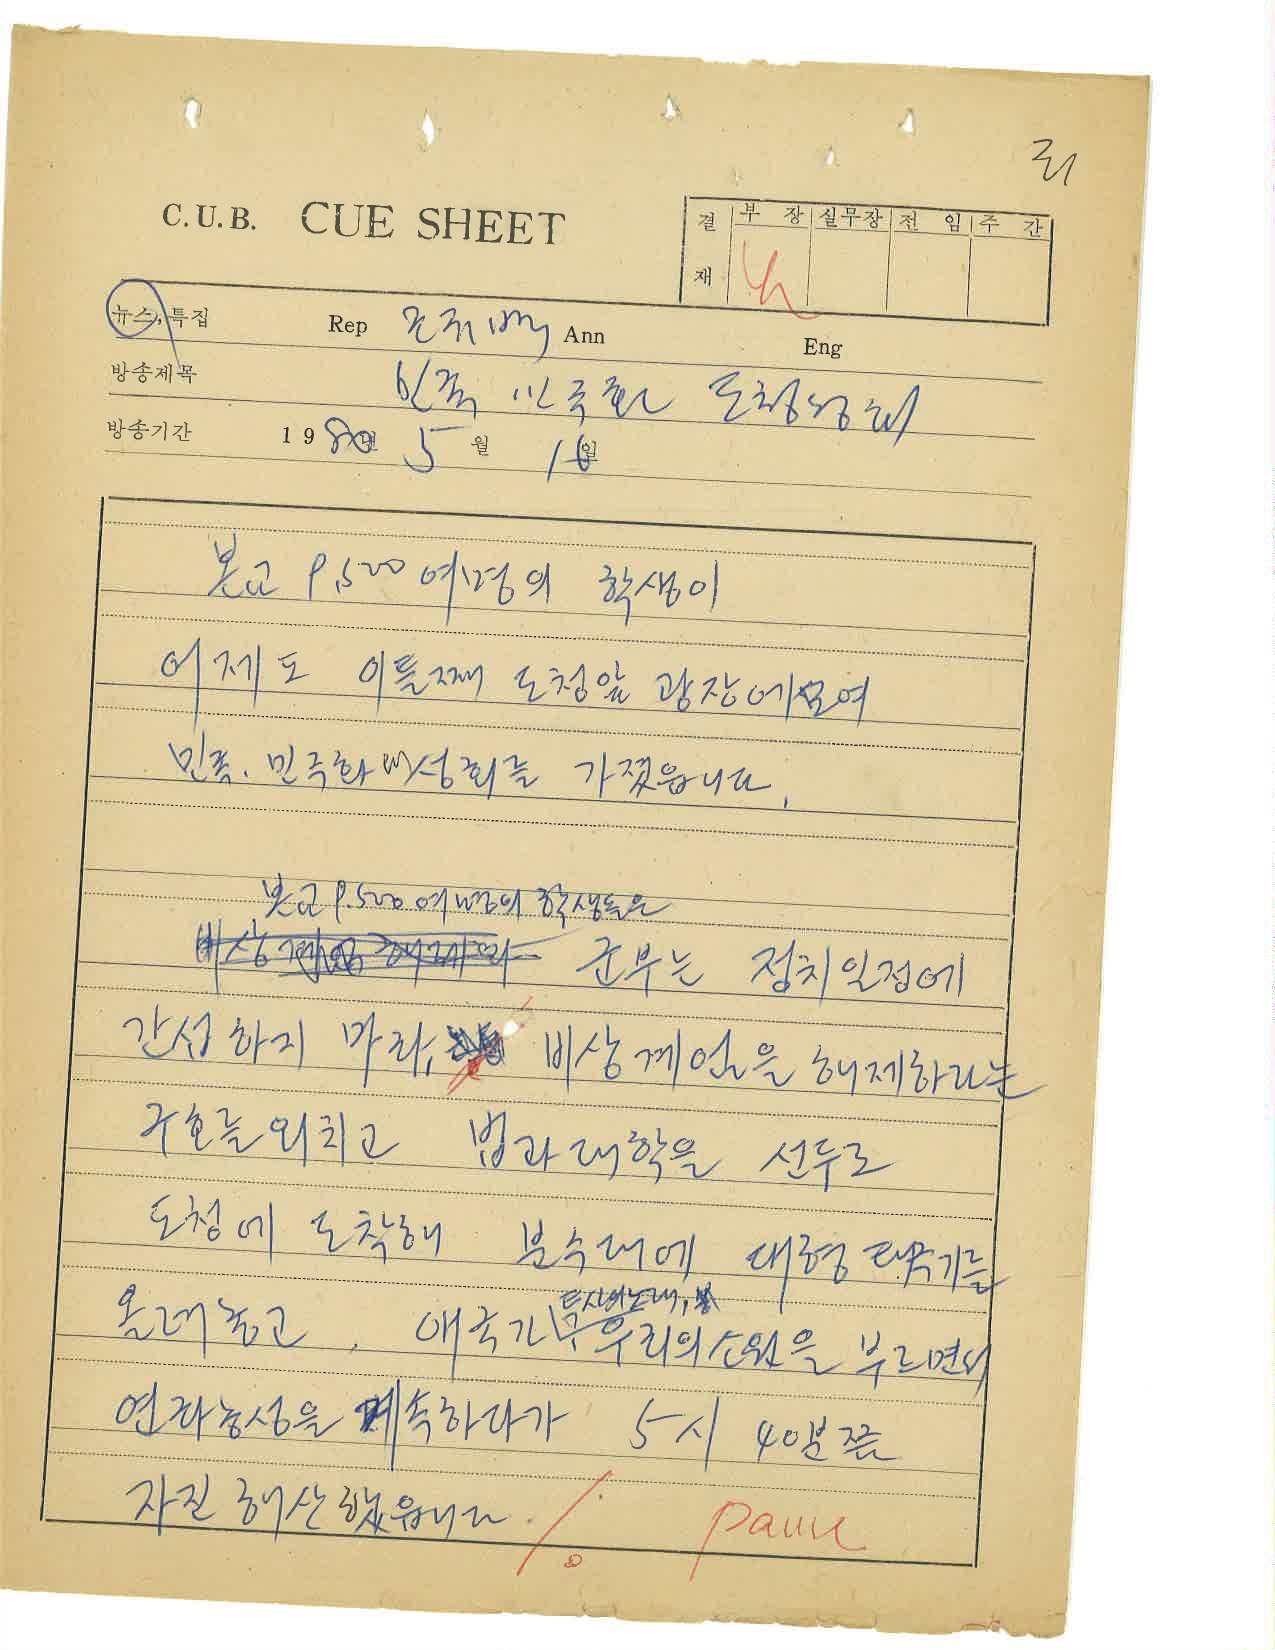 리
C.U.B. CUE SHEET
결재 부장 실무장 전임 주간
뉴스, 특집 Rep Ann Eng
방송제목 민족 민주화 도청농성
방송기간 1980년 5월 16일
본교 9,500여명의 학생이
어제도 이틀째 도청앞 광장에모여
민족. 민주화 대성회를 가졌읍니다.
본교 9.500여명의 학생들은
비상계엄 해제하라 군부는 정치일정에
간섭하지 마라, 비상계엄을 해제하라는
구호를 외치고 법과대학을 선두로
도청에 도착해 분수대에 대형 태극기를
투사의노래,
올려놓고, 애국가 우리의소원을 부르면서
연좌농성을 계속하다가 5시 40분쯤
자진 해산했읍니다.
pause